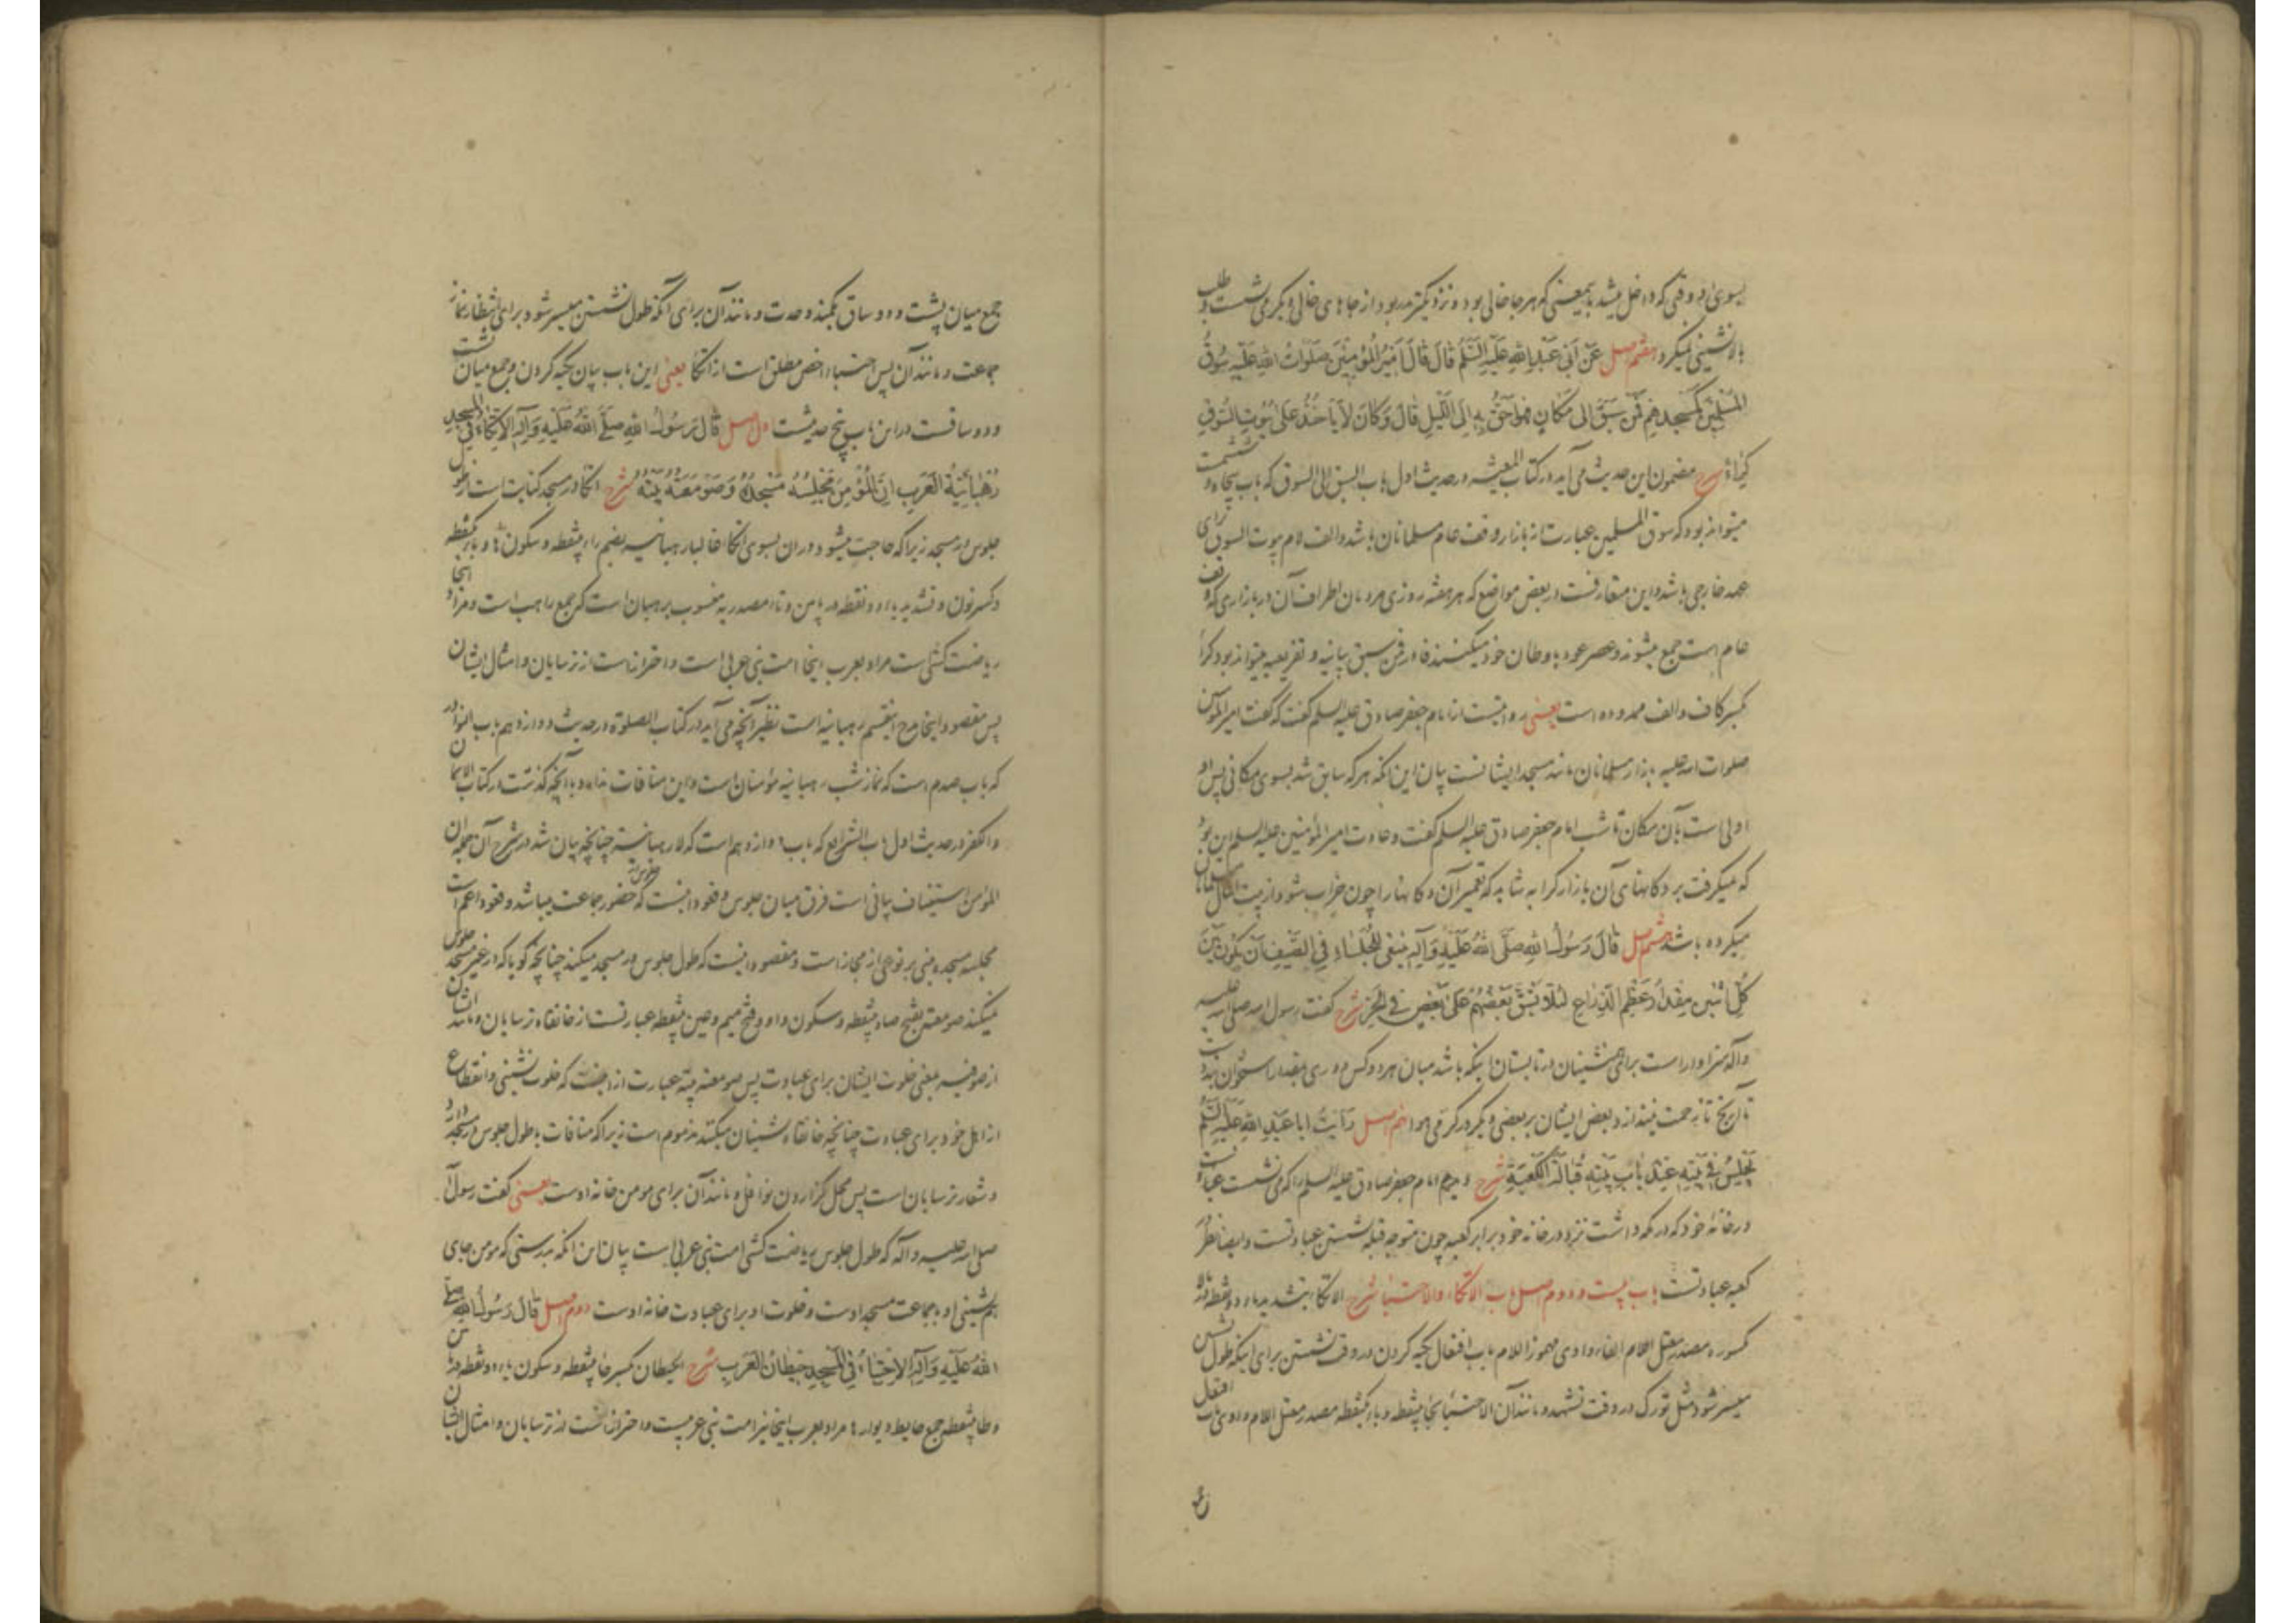 بسوی او وقتی که داخل میشد بمعنی که هر جا خالی بود و نزدیکتر بدر بود از جاهای خالی دیگر می نشست و طلب
بالانشینی نمیکرد هفتم اصل عَنْ أَبِي عَبْدِ اللهِ عَلَيْهِ السَّلَمُ قَالَ قَالَ أَمِيرُ الْمُؤْمِنِينَ صَلَوَاتُ اللهِ عَلَيْهِ سُوقُ
الْمُسْلِمِينَ كَمَسْجِدِهِمْ فَمَنْ سَبَقَ إِلَى مَكَانٍ فَهُوَ أَحَقُّ بِهِ إِلَى اللَّيْلِ قَالَ وَكَانَ لَا يَأْخُذُ عَلَى بُيُوتِ السُّوقِ
كِرَاءً شرح مضمون این حدیث می آید در کتاب المعیشه در حدیث اول باب السبق الی السوق که باب پنجاه و ششمست
میتواند بود که سوق المسلمین عبارت از بازار وقف عام مسلمانان باشد و الف لام بیوت السوق برای
عهد خارجی باشد و این متعارفست در بعض مواضع که هر هفته روزی مردمان اطراف آن در بازاری که وقف
عام است جمع میشوند و عصر عود باوطان خود میکنند فاء در فمن سبق بیانیه و تفریعیه میتواند بود کراء
بکسر کاف و الف ممدوده است یعنی روایتست از امام جعفر صادق علیه السلم گفت که گفت امیر المؤمنین
صلوات الله علیه بازار مسلمانان مانند مسجد ایشانست بیان این آنکه هر که سابق شد بسوی مکانی پس او
اولی است بآن مکان تا شب امام جعفر صادق علیه السلم گفت و عادت امیر المؤمنین علیه السلم این بود
که نمیگرفت بر دکانهای آن بازار کرا به شاید که تعمیر آن دکانها را چون خراب شود از بیت المال مسلمانان
میکرده باشد هشتم اصل قَالَ رَسُولُ اللهِ صَلَّى اللهُ عَلَيْهِ وَآلِهِ يَنْبَغِي لِلْجُلَسَاءِ فِي الصَّيْفِ أَنْ يَكُونَ بَيْنَ
كُلِّ اثْنَيْنِ مِقْدَارُ عَظْمِ الذِّرَاعِ لِئَلَّا يَشُقَّ بَعْضُهُمْ عَلَى بَعْضٍ فِي الْحَرِّ شرح گفت رسول الله صلی الله علیه
وآله سزاوار است برای همنشینان در تابستان اینکه باشد میان هر دو کس دوری بمقدار استخوان بند
تا آرنج تا زحمت نیندازد بعض ایشان بر بعضی دیگر در گرمی هوا نهم اصل رَأَيْتُ أَبَا عَبْدِ اللهِ عَلَيْهِ السَّلَمُ
يَجْلِسُ فِي بَيْتِهِ عِنْدَ بَابِ بَيْتِهِ قُبَالَةَ الْكَعْبَةِ شرح دیدم امام جعفر صادق علیه السلم را که می نشست
در خانه خود که در مکه داشت نزد در خانه خود برابر کعبه چون متوجه قبله نشستن عبادتست و ایضا نظر در
کعبه عبادتست باب بیست و دوم اصل باب الاتکاء والاحتباء شرح الاتکاء بتشدید تاء دو نقطه در بالا
مکسوره مصدر معتل الفاء واوی مهموز اللام باب افتعال تکیه کردن در وقت نشستن برای اینکه طول نشستن
میسر شود مثل تورک در وقت تشهد و مانند آن الاحتباء بحاء بینقطه و باء یکنقطه مصدر معتل اللام واوی باب افتعال
جمع میان پشت و دو ساق بکمند وحدت و مانند آن برای آنکه طول نشستن میسر شود برای انتظار نماز
جماعت و مانند آن پس احتباء اخص مطلق است از اتکا یعنی این باب بیان تکیه کردن و جمع میان پشت
و دو ساقست در این باب پنج حدیثست اول اصل قَالَ رَسُولُ اللهِ صَلَّى اللهُ عَلَيْهِ وَآلِهِ الِاتِّكَاءُ فِي الْمَسْجِدِ
رُهْبَانِيَّةُ الْعَرَبِ إِنَّ الْمُؤْمِنَ مَجْلِسُهُ مَسْجِدُهُ وَصَوْمَعَتُهُ بَيْتُهُ شرح اتکا در مسجد کنایت است از طول
جلوس در مسجد زیرا که حاجت میشود در آن بسوی اتکا غالبا رهبانیه بضم راء بینقطه و سکون ها و باء یکنقطه
و کسر نون و تشدید یاء دو نقطه در پایین و تاء مصدریه منسوب برهبان است که جمع راهب است و مراد اینجا
ریاضت کشی است مراد بعرب اینجا امت نبی عربی است و احتراز است از ترسایان و امثال ایشان
پس مقصود اینجا مدح اینقسم رهبانیه است نظیر آنچه می آید در کتاب الصلوة در حدیث دوازدهم باب النوادر
که باب صدم است که نماز شب رهبانیه مؤمنان است و این منافات ندارد با آنچه گذشت در کتاب الایمان
والکفر در حدیث اول باب الشرایع که باب دوازدهم است که لا رهبانیة چنانچه بیان شد در شرح آن جمله ان
المؤمن استیناف بیانی است فرق میان جلوس و قعود اینست که جلوس در حضور جماعت میباشد و قعود اعم است
مجلسه مسجده مبنی بر نوعی از مجاز است و مقصود اینست که طول جلوس در مسجد میکند چنانچه گویا که در غیر مسجد جلوس
نمیکند صومعة بفتح صاد بینقطه و سکون واو و فتح میم و عین بینقطه عبارتست از خانقاه ترسایان و مانند ایشان
از صوفیه بمعنی خلوت ایشان برای عبادت پس صومعته بیته عبارت از اینست که خلوت نشینی و انقطاع
از اهل خود برای عبادت چنانچه خانقاه نشینان میکنند مذموم است زیرا که منافات با طول جلوس در مسجد دارد
و شعار ترسایان است پس محل گزاردن نوافل و مانند آن برای مومن خانه اوست یعنی گفت رسول الله
صلی الله علیه وآله که طول جلوس ریاضت کشی امت نبی عربی است بیان این آنکه بدرستی که مومن جای
همنشینی او بجماعت مسجد اوست و خلوت او برای عبادت خانه اوست دوم اصل قَالَ رَسُولُ اللهِ صَلَّى
اللهُ عَلَيْهِ وَآلِهِ الِاحْتِبَاءُ فِي الْمَسْجِدِ حِيطَانُ الْعَرَبِ شرح الحیطان بکسر حاء بینقطه و سکون یاء دو نقطه در پایین
و طاء بینقطه جمع حایط دیوارها مراد بعرب اینجا نیز امت نبی عربیست و احتراز است از ترسایان و امثال ایشان